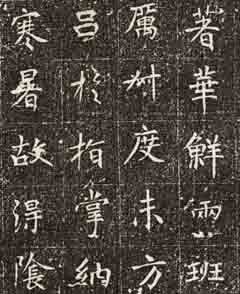 著華鮮班
厲度未方
吕於指掌納
寒暑故得陰